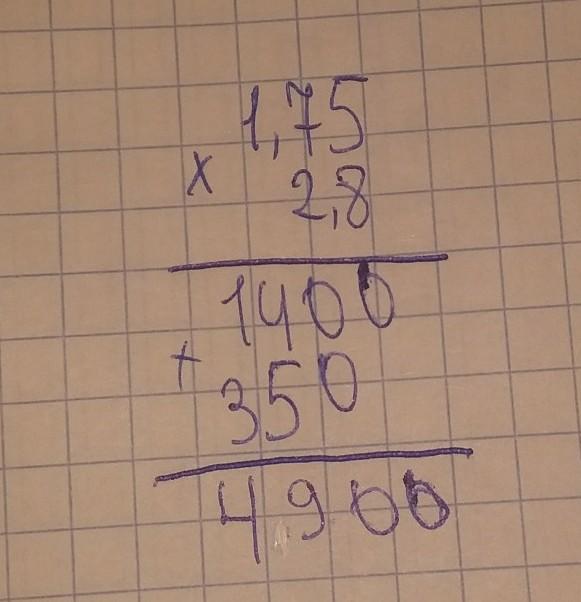 1,75
x 2,8
1400
+ 350
4900